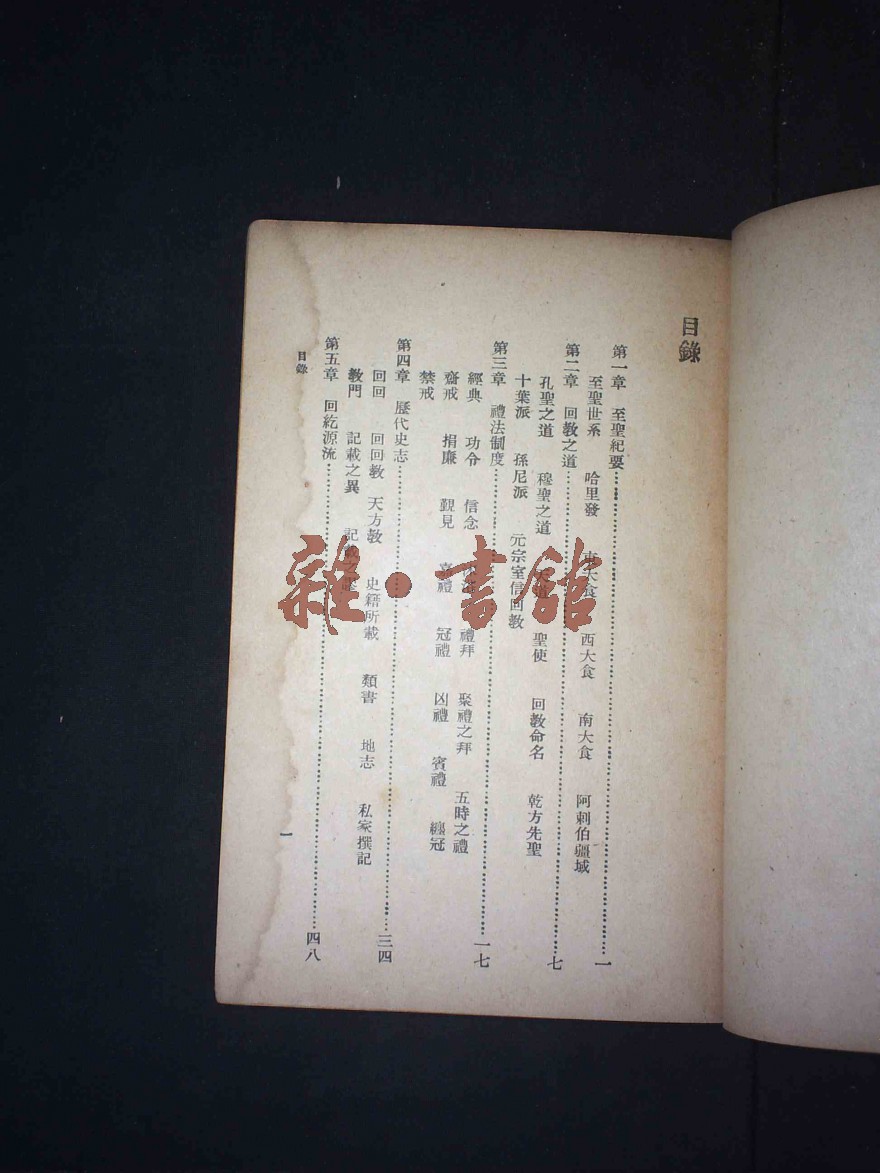 目錄
第一章　至聖紀要……一
至聖世系　哈里發　東大食　西大食　南大食　阿剌伯疆域
第二章　回教之道……七
孔聖之道　穆聖之道　天道　聖使　回教命名　乾方先聖
十葉派　孫尼派　元宗室信回教
第三章　禮法制度……一七
經典　功令　信念　禮拜　聚禮之拜　五時之禮
齋戒　捐廉　覲見　喜禮　冠禮　凶禮　賓禮　纏冠
禁戒
第四章　歷代史志……三四
回回　回回教　天方教　史籍所載　類書　地志　私家撰記
教門　記載之異　記載之
第五章　回紇源流……四八
目錄
一
雜·書館